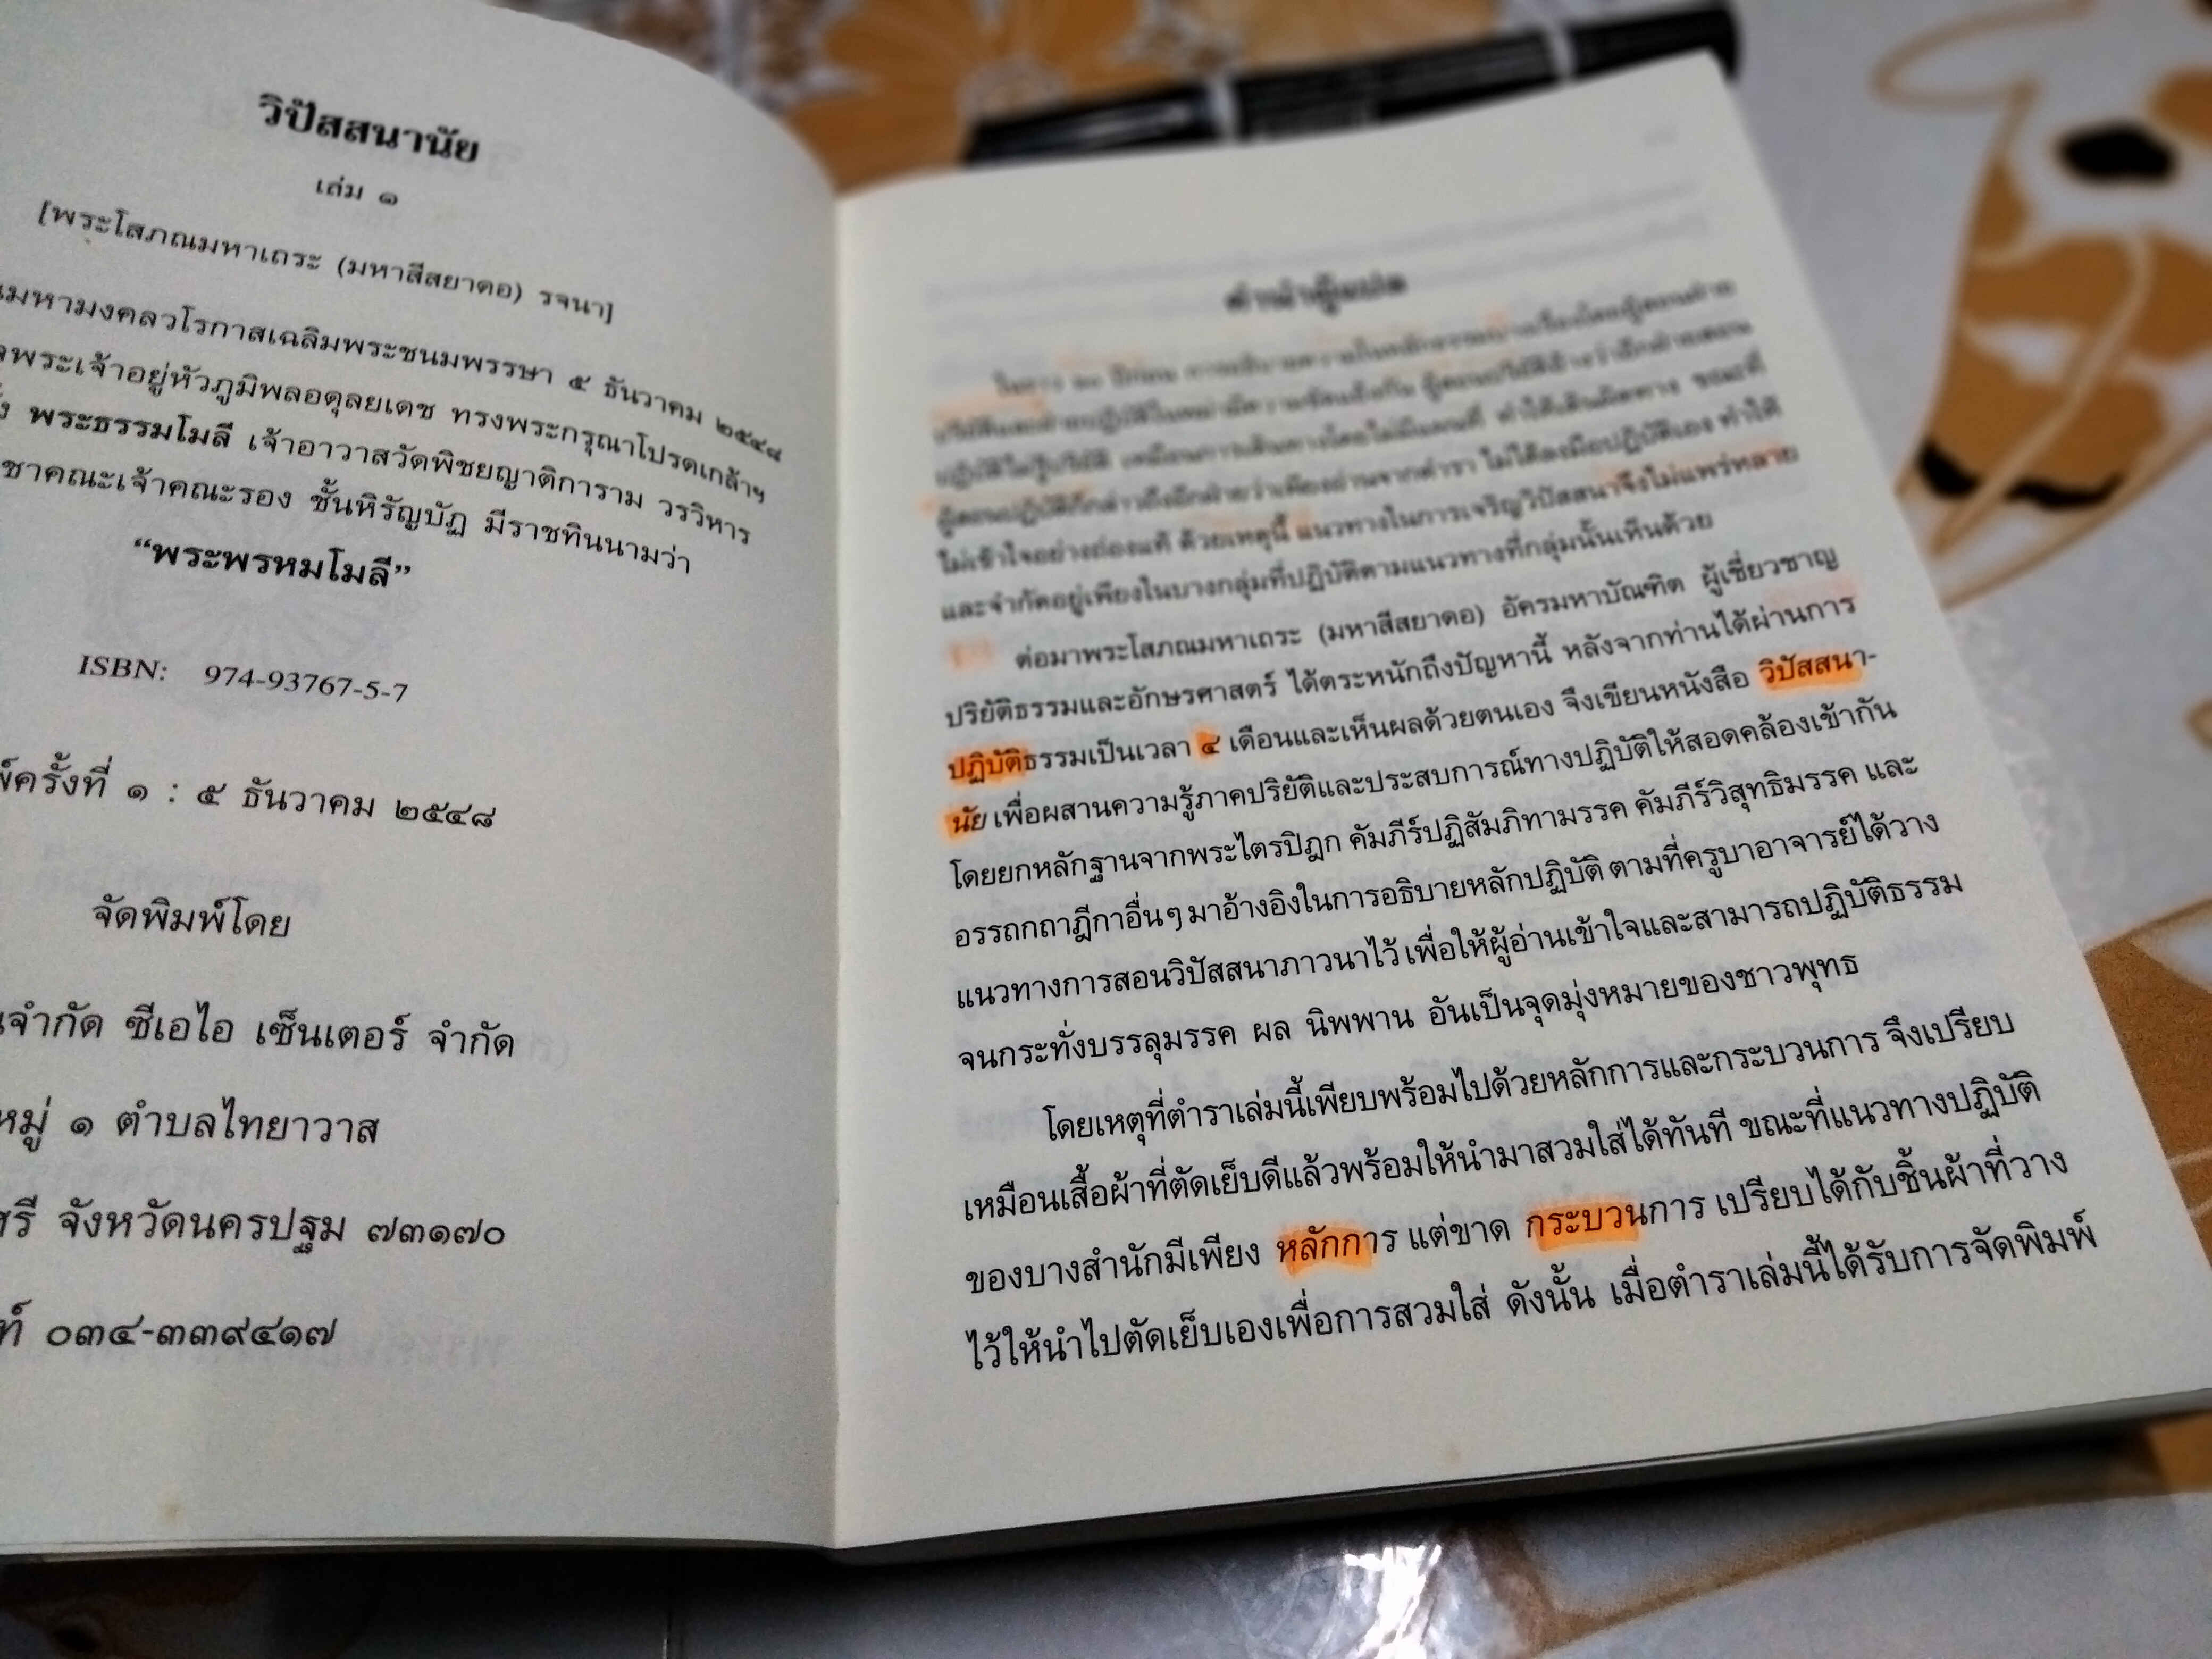 วิปัสสนานัย
เล่ม ๑
[พระโสภณมหาเถระ (มหาสีสยาดอ) รจนา]
มหามงคลวโรกาสเฉลิมพระชนมพรรษา ๕ ธันวาคม ๒๕๔๘
พระเจ้าอยู่หัวภูมิพลอดุลยเดช ทรงพระกรุณาโปรดเกล้าฯ
พระธรรมโมลี เจ้าอาวาสวัดพิชยญาติการาม วรวิหาร
ชาคณะเจ้าคณะรอง ชั้นหิรัญบัฏ มีราชทินนามว่า
“พระพรหมโมลี”
ISBN: 974-93767-5-7
พ์ครั้งที่ ๑ : ๕ ธันวาคม ๒๕๔๘
จัดพิมพ์โดย
จำกัด ซีเอไอ เซ็นเตอร์ จำกัด
หมู่ ๑ ตำบลไทยาวาส
ศรี จังหวัดนครปฐม ๗๓๑๗๐
ท์ ๐๓๔-๓๓๙๔๑๗
คำนำผู้แปล
ปฏิบัติไม่รู้ปริยัติ เหมือนการเดินทางโดยไม่มีแผนที่ ทำให้เดินผิดทาง ขณะที่
ผู้สอนปฏิบัติก็กล่าวถึงอีกฝ่ายว่าเพียงอ่านจากตำรา ไม่ได้ลงมือปฏิบัติเอง ทำให้
ไม่เข้าใจอย่างถ่องแท้ ด้วยเหตุนี้ แนวทางในการเจริญวิปัสสนาจึงไม่แพร่หลาย
และจำกัดอยู่เพียงในบางกลุ่มที่ปฏิบัติตามแนวทางที่กลุ่มนั้นเห็นด้วย
ต่อมาพระโสภณมหาเถระ (มหาสีสยาดอ) อัครมหาบัณฑิต ผู้เชี่ยวชาญ
ปริยัติธรรมและอักษรศาสตร์ ได้ตระหนักถึงปัญหานี้ หลังจากท่านได้ผ่านการ
ปฏิบัติธรรมเป็นเวลา ๔ เดือนและเห็นผลด้วยตนเอง จึงเขียนหนังสือ วิปัสสนา-
นัย เพื่อผสานความรู้ภาคปริยัติและประสบการณ์ทางปฏิบัติให้สอดคล้องเข้ากัน
โดยยกหลักฐานจากพระไตรปิฎก คัมภีร์ปฏิสัมภิทามรรค คัมภีร์วิสุทธิมรรค และ
อรรถกถาฎีกาอื่นๆ มาอ้างอิงในการอธิบายหลักปฏิบัติ ตามที่ครูบาอาจารย์ได้วาง
แนวทางการสอนวิปัสสนาภาวนาไว้ เพื่อให้ผู้อ่านเข้าใจและสามารถปฏิบัติธรรม
จนกระทั่งบรรลุมรรค ผล นิพพาน อันเป็นจุดมุ่งหมายของชาวพุทธ
โดยเหตุที่ตำราเล่มนี้เพียบพร้อมไปด้วยหลักการและกระบวนการ จึงเปรียบ
เหมือนเสื้อผ้าที่ตัดเย็บดีแล้วพร้อมให้นำมาสวมใส่ได้ทันที ขณะที่แนวทางปฏิบัติ
ของบางสำนักมีเพียง หลักการ แต่ขาด กระบวนการ เปรียบได้กับชิ้นผ้าที่วาง
ไว้ให้นำไปตัดเย็บเองเพื่อการสวมใส่ ดังนั้น เมื่อตำราเล่มนี้ได้รับการจัดพิมพ์